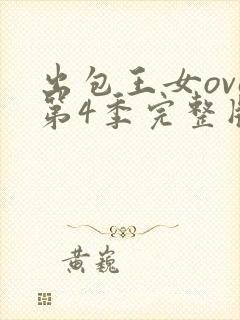 出包王女ova
第4季完整版
黄巍